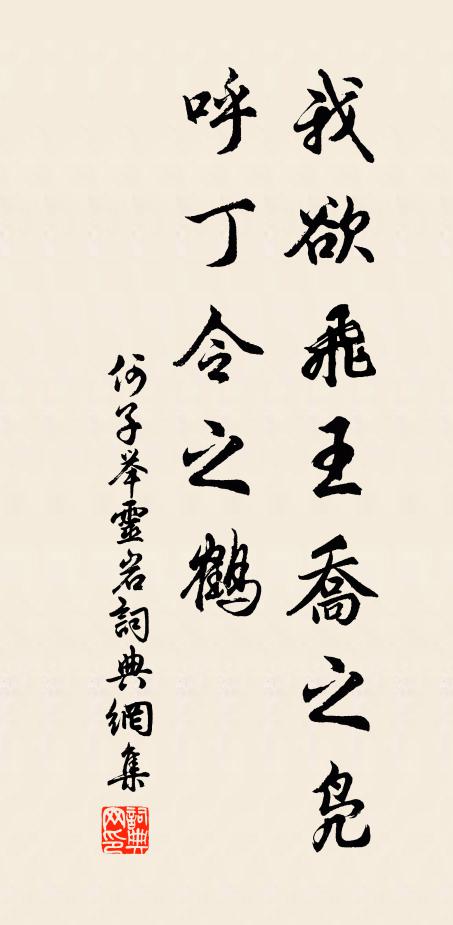 我欲飛王喬之凫
呼丁令之鶴
何子举靈岩詞典網集
詞典网印